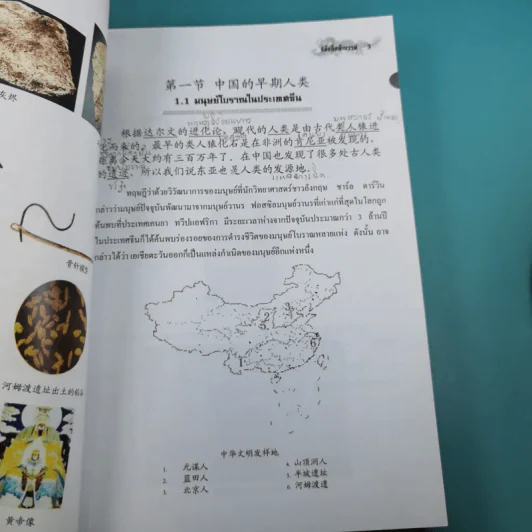 灰烬
骨针模型
河姆渡遗址出土的稻谷
黄帝像
3
第一节 中国的早期人类
1.1 มนุษย์โบราณในประเทศจีน
根据达尔文的进化论，现代的人类是由古代类人猿进
化而来的。最早的类人猿化石是在非洲的肯尼亚被发现的，
距离今天大约有三百万年了。在中国也发现了很多处古人类
的遗迹，所以我们说东亚也是人类的发源地。
ทฤษฎีว่าด้วยวิวัฒนาการของมนุษย์ที่นักวิทยาศาสตร์ชาวอังกฤษ ชาร์ล ดาร์วิน
กล่าวว่ามนุษย์ปัจจุบันพัฒนามาจากมนุษย์วานร ฟอสซิลมนุษย์วานรที่เก่าแก่ที่สุดในโลกถูก
ค้นพบที่ประเทศเคนยา ทวีปแอฟริกา มีระยะเวลาห่างจากปัจจุบันประมาณกว่า 3 ล้านปี
ในประเทศจีนก็ได้ค้นพบร่องรอยของการดำรงชีวิตของมนุษย์โบราณหลายแห่ง ดังนั้น อาจ
กล่าวได้ว่า เอเชียตะวันออกก็เป็นแหล่งกำเนิดของมนุษย์อีกแห่งหนึ่ง
2
3
6
1
中华文明发祥地
1. 元谋人
2. 蓝田人
3. 北京人
4. 山顶洞人
5. 半坡遗址
6. 河姆渡遗